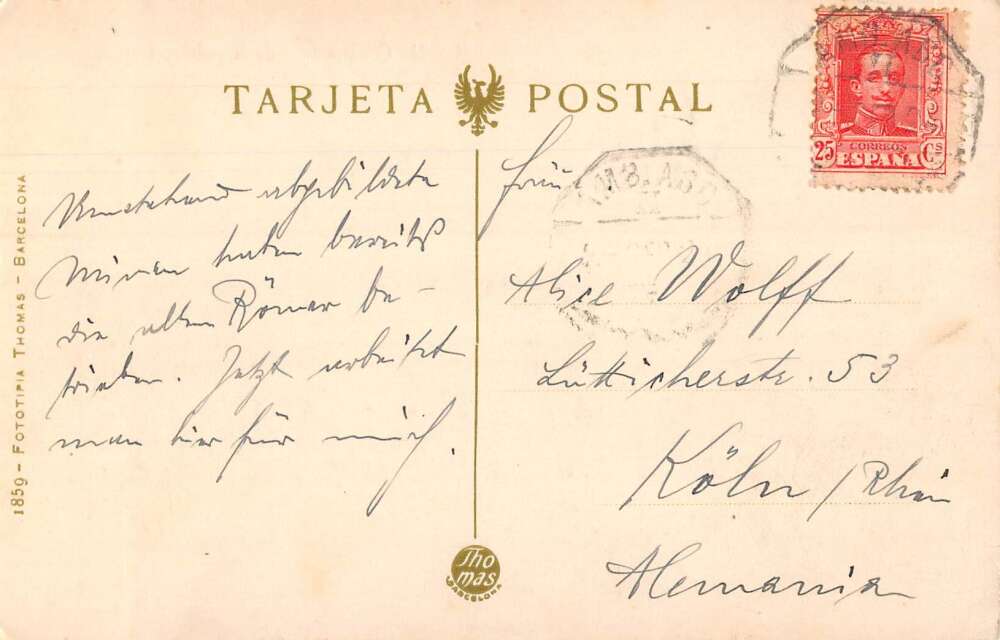 TARJETA POSTAL
Umstehend abgebildete
Minen haben bereits
die alten Römer be-
trieben. Jetzt arbeitet
man hier für mich.
Frau
Alice Wolff
Lütticherstr. 53
Köln / Rhein
Alemania
CORREOS
25 ESPAÑA Cs
AMB. ASC
1859 - FOTOTIPIA THOMAS - BARCELONA
Thomas
BARCELONA